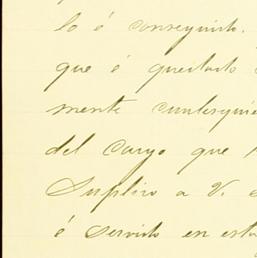 lo é conseguido.
que é quedado
mente cualesquie
del cargo que
Suplico a V.
é servido en est